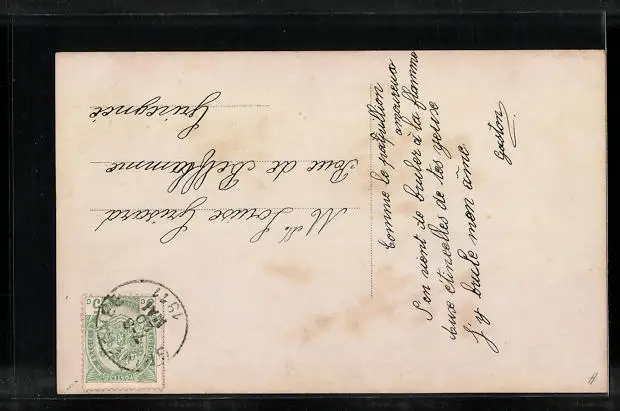 Comme le papillion
amoureux
S'en vient de bruler à la flamme
aux étincelles de tes yeux
J'y brule mon âme
gaston
Mlle Louise Grisard
Rue de Belflamme
Grivegnée
MAI
1911